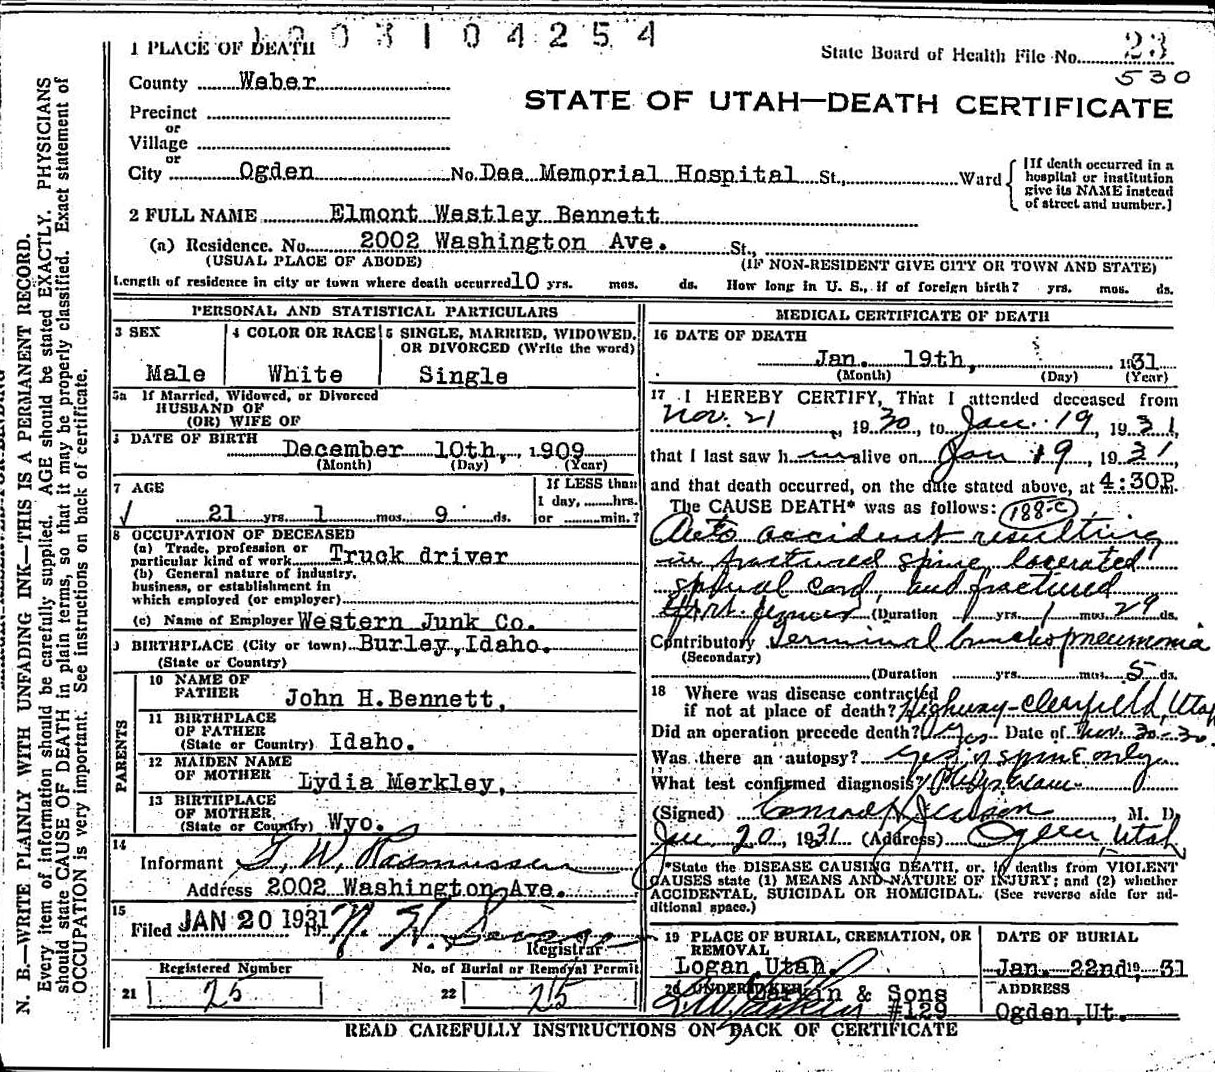 1 PLACE OF DEATH
State Board of Health File No. 23
530
County Weber
STATE OF UTAH—DEATH CERTIFICATE
Precinct
or
Village
or
City Ogden No. Dee Memorial Hospital St., Ward
[If death occurred in a
hospital or institution
give its NAME instead
of street and number.]
2 FULL NAME Elmont Westley Bennett
(a) Residence. No. 2002 Washington Ave. St.,
(USUAL PLACE OF ABODE) (IF NON-RESIDENT GIVE CITY OR TOWN AND STATE)
Length of residence in city or town where death occurred 10 yrs. mos. ds. How long in U. S., if of foreign birth? yrs. mos. ds.
PERSONAL AND STATISTICAL PARTICULARS
3 SEX
Male
4 COLOR OR RACE
White
5 SINGLE, MARRIED, WIDOWED,
OR DIVORCED (Write the word)
Single
5a If Married, Widowed, or Divorced
HUSBAND OF
(OR) WIFE OF
DATE OF BIRTH
December 10th, 1909
(Month) (Day) (Year)
7 AGE
21 yrs. 1 mos. 9 ds.
If LESS than
1 day, hrs.
or min.?
8 OCCUPATION OF DECEASED
(a) Trade, profession or
particular kind of work Truck driver
(b) General nature of industry,
business, or establishment in
which employed (or employer)
(c) Name of Employer Western Junk Co.
BIRTHPLACE (City or town) Burley, Idaho.
(State or Country)
PARENTS
10 NAME OF
FATHER John H. Bennett,
11 BIRTHPLACE
OF FATHER
(State or Country) Idaho.
12 MAIDEN NAME
OF MOTHER Lydia Merkley,
13 BIRTHPLACE
OF MOTHER
(State or Country) Wyo.
14
Informant G. W. Rasmussen
Address 2002 Washington Ave.
15
Filed JAN 20 1931
Registrar
Registered Number
21 25
No. of Burial or Removal Permit
22 25
MEDICAL CERTIFICATE OF DEATH
16 DATE OF DEATH
Jan. 19th, 1931
(Month) (Day) (Year)
17 I HEREBY CERTIFY, That I attended deceased from
Nov. 21, 1930, to Jan. 19, 1931,
that I last saw him alive on Jan 19, 1931,
and that death occurred, on the date stated above, at 4:30P.
The CAUSE DEATH* was as follows: 188-c
Auto accident resulting
in fractured spine, lacerated
spinal cord, and fractured
femur (Duration yrs. 1 mos. 29 ds.
Contributory Terminal bronchopneumonia
(Secondary)
(Duration yrs. mos. 5 ds.
18 Where was disease contracted
if not at place of death? Highway-Clearfield, Utah
Did an operation precede death? Yes Date of Nov. 30-30
Was there an autopsy? yes of spine only
What test confirmed diagnosis?
(Signed) Conrad Jenson, M. D.
Jan 20, 1931 (Address) Ogden, Utah
*State the DISEASE CAUSING DEATH, or, in deaths from VIOLENT
CAUSES state (1) MEANS AND NATURE OF INJURY; and (2) whether
ACCIDENTAL, SUICIDAL OR HOMICIDAL. (See reverse side for ad-
ditional space.)
19 PLACE OF BURIAL, CREMATION, OR
REMOVAL
Logan Utah.
DATE OF BURIAL
Jan. 22nd, 19 31
20 UNDERTAKER
Larkin & Sons
#129
ADDRESS
Ogden, Ut.
READ CAREFULLY INSTRUCTIONS ON BACK OF CERTIFICATE
N. B.—WRITE PLAINLY WITH UNFADING INK—THIS IS A PERMANENT RECORD.
Every item of information should be carefully supplied. AGE should be stated EXACTLY. PHYSICIANS
should state CAUSE OF DEATH in plain terms, so that it may be properly classified. Exact statement of
OCCUPATION is very important. See instructions on back of certificate.